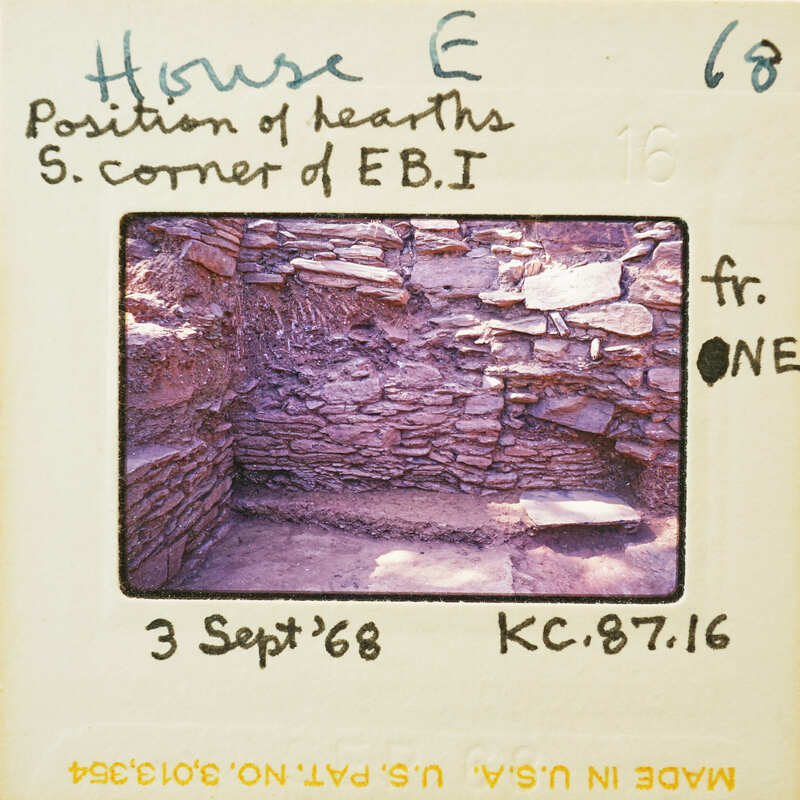 House E 68
Position of hearths
S. corner of E B.I
16
fr.
ONE
3 Sept '68 KC.87.16
MADE IN U.S.A. U.S. PAT. NO. 3,013,354